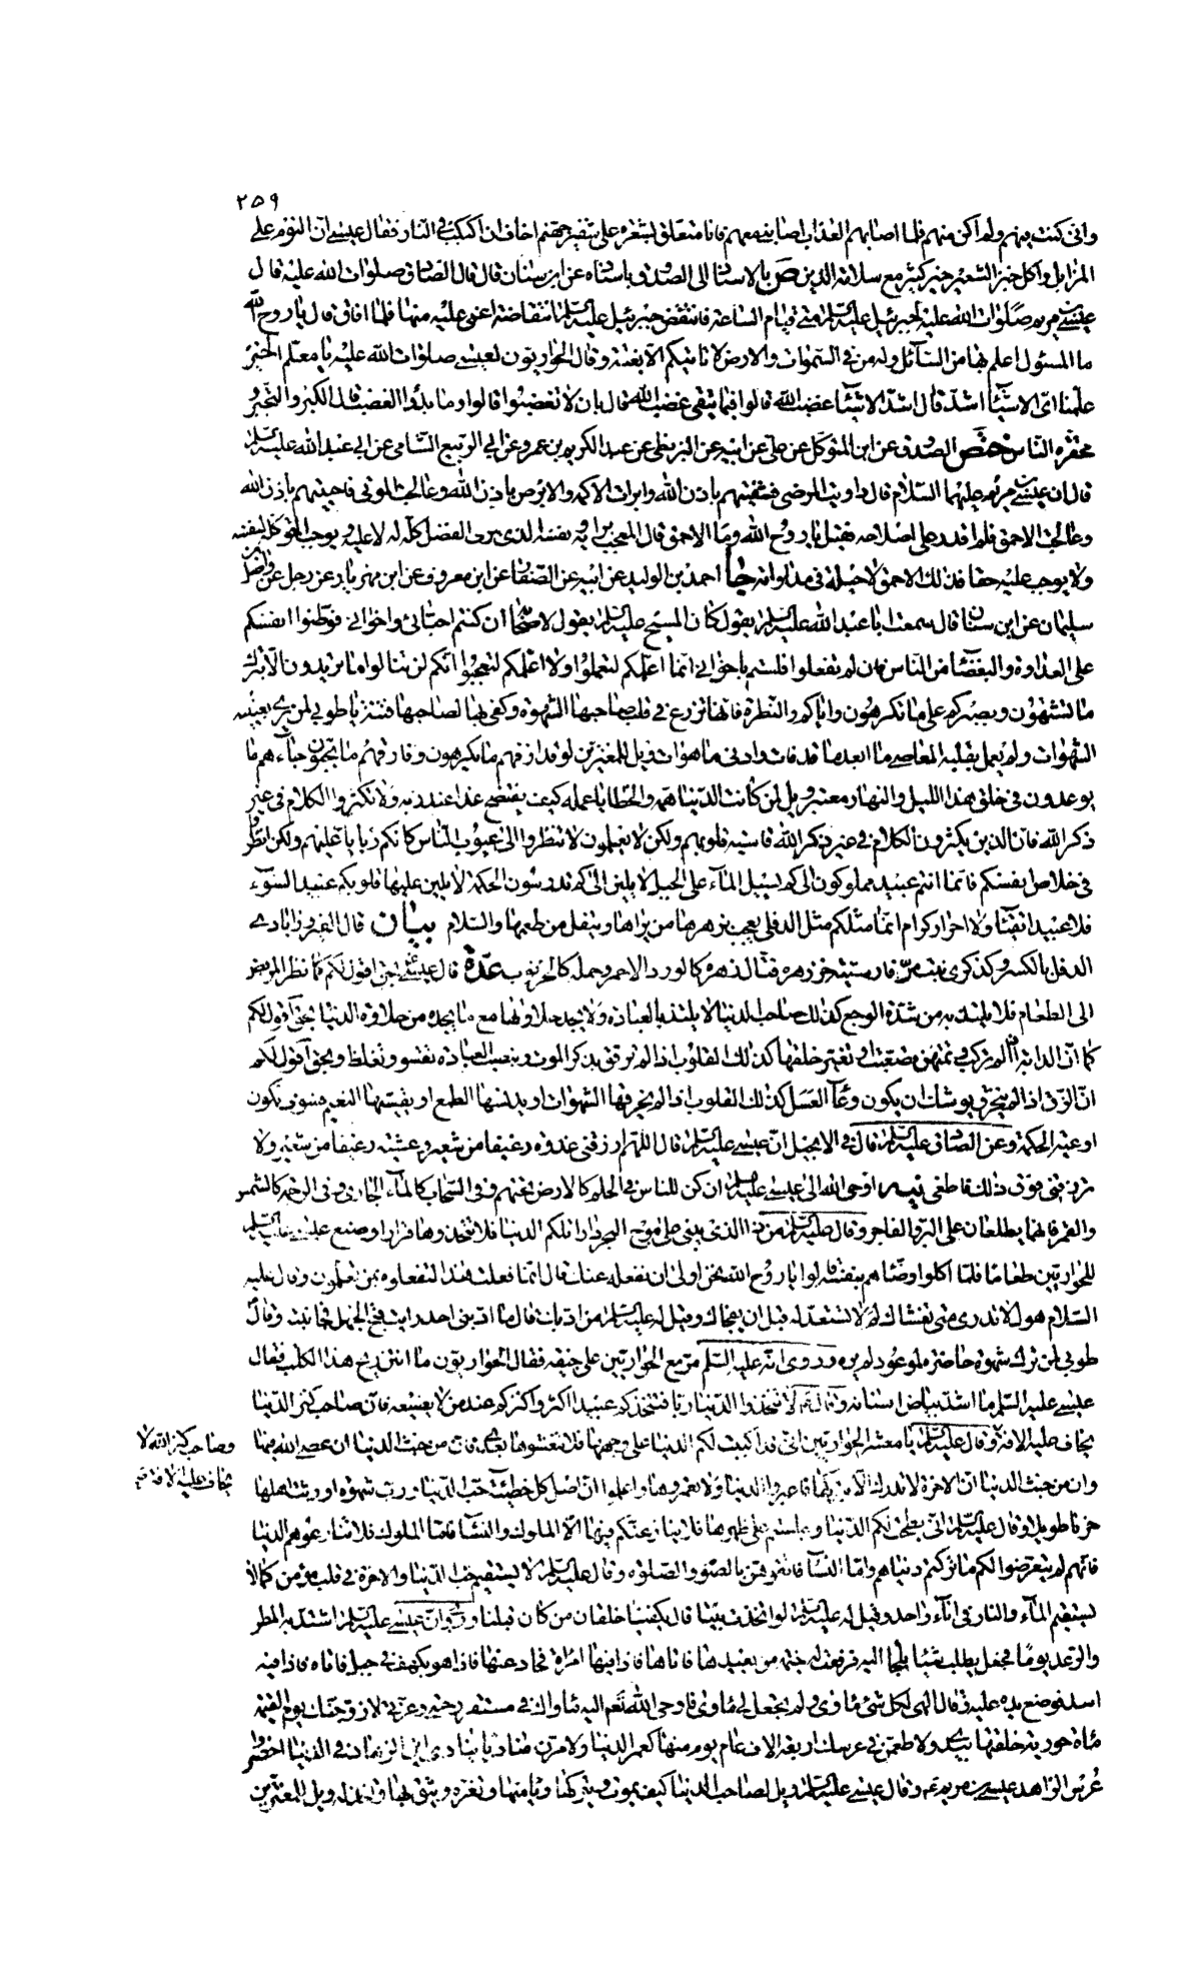 ٢٥٩
وانى كنت بينهم ولم اكن منهم فلما اصابهم العذاب اصابنى معهم فانا متعلق بشعرة على شفير جهنم اخاف ان اكبكب فى النار فقال عيسى ان النوم على
المزابل واكل خبز الشعير خير كثير مع سلامة الدين ص بالاسناد الى الصدوق باسناده عن ابن سنان قال قال الصادق صلوات الله عليه قال
عيسى بن مريم صلوات الله عليه لجبرئيل عليه السلم متى قيام الساعة فانتفض جبرئيل عليه السلم انتفاضة اغمى عليه منها فلما افاق قال يا روح الله
ما المسئول اعلم بها من السآئل وله من فى السموات والارض لا تاتيكم الا بغتة وقال الحواريون لعيسى صلوات الله عليه يا معلم الخير
علمنا اى الاشيآء اشد قال اشد الاشيآء غضب الله قالوا فيما يتقى غضب الله قال بان لا تغضبوا قالوا وما بدؤ الغضب قال الكبر والتجبر و
محقرة الناس ختص الصدوق عن ابن المتوكل عن على عن ابيه عن البزنطى عن عبد الكريم بن عمرو عن ابى الربيع الشامى عن ابى عبد الله عليه السلم
قال ان عيسى بن مريم عليهما السلام قال داويت المرضى فشفيتهم باذن الله وابرات الاكمه والابرص باذن الله وعالجت الموتى فاحييتهم باذن الله
وعالجت الاحمق فلم اقدر على اصلاحه فقيل يا روح الله وما الاحمق قال المعجب برايه ونفسه الذى يرى الفضل كله له لا عليه ويوجب الحق كله لنفسه
ولا يوجب عليه حقا فذلك الاحمق لا حيلة فى مداواته جا احمد بن الوليد عن ابيه عن الصفار عن ابن معروف عن ابن مهزيار عن رجل عن واصل بن
سليمان عن ابن سنان قال سمعت ابا عبد الله عليه السلم يقول كان المسيح عليه السلم يقول لاصحابه ان كنتم احبائى واخوانى فوطنوا انفسكم
على العداوة والبغضآء من الناس فان لم تفعلوا فلستم باخوانى انما اعلمكم لتعملوا ولا اعلمكم لتعجبوا انكم لن تنالوا ما تريدون الا بترك
ما تشتهون وبصبركم على ما تكرهون واياكم والنظرة فانها تزرع فى قلب صاحبها الشهوة وكفى بها لصاحبها فتنة يا طوبى لمن يرى بعينه
الشهوات ولم يعمل بقلبه المعاصى ما ابعد ما قد فات وادنى ما هو ات ويل للمغترين لو قد ازفهم ما يكرهون وفارقهم ما يحبون وجآءهم ما
يوعدون فى خلق هذا الليل والنهار معتبر ويل لمن كانت الدنيا همه والخطايا عمله كيف يفتضح غدا عند ربه ولا تكثروا الكلام فى غير
ذكر الله فان الذين يكثرون الكلام فى غير ذكر الله قاسية قلوبهم ولكن لا يعلمون لا تنظروا الى عيوب الناس كانكم رئايا عليهم ولكن انظروا
فى خلاص انفسكم فانما انتم عبيد مملوكون الى كم يسيل المآء على الجبل لا يلين الى كم تدرسون الحكمة لا يلين عليها قلوبكم عبيد السوء
فلا عبيد اتقيآء ولا احرار كرام انما مثلكم كمثل الدفلى يعجب بزهرها من يراها ويقتل من طعمها والسلام بيان قال الفيروزابادى
الدفل بالكسر وكذكرى نبت مر فارسيته خرزهره قتال زهره كالورد الاحمر وحمله كالخرنوب عدة قال عيسى ع بحق اقول لكم كما نظر المريض
الى الطعام فلا يلتذ به من شدة الوجع كذلك صاحب الدنيا لا يلتذ بالعبادة ولا يجد حلاوتها مع ما يجده من حلاوة الدنيا بحق اقول لكم
كما ان الدابة اذا لم تركب وتمتهن تصعبت وتغير خلقها كذلك القلوب اذا لم ترقق بذكر الموت وبنصب العبادة تقسو وتغلظ وبحق اقول لكم
ان الزق اذا لم ينخرق يوشك ان يكون وعآء العسل كذلك القلوب اذا لم تخرقها الشهوات او يدنسها الطمع او يقسيها النعيم فسوف تكون
اوعية الحكمة وعن الصادق عليه السلم قال فى الانجيل ان عيسى عليه السلم قال اللهم ارزقنى غدوة رغيفا من شعير وعشية رغيفا من شعير ولا
ترزقنى فوق ذلك فاطغى نبيه اوحى الله الى عيسى عليه السلم ان كن للناس فى الحلم كالارض تحتهم وفى السخاء كالمآء الجارى وفى الرحمة كالشمس
والقمر فانهما يطلعان على البر والفاجر وقال عليه السلم من ذا الذى يبنى على موج البحر دارا تلكم الدنيا فلا تتخذوها قرارا وصنع عيسى عليه السلم
للحواريين طعاما فلما اكلوا وضاهم بنفسه قالوا يا روح الله نحن اولى ان نفعله عنك قال انما فعلت هذا لتفعلوه بمن تعلمون وقال عليه
السلام هول لا تدرى متى يغشاك لم لا تستعد له قبل ان يفجاك وقيل له عليه السلم من ادبك قال ما ادبنى احد رايت قبح الجهل فجانبته وقال
طوبى لمن ترك شهوة حاضرة لموعود لم يره وروى انه عليه السلم مر مع الحواريين على جيفة فقال الحواريون ما انتن ريح هذا الكلب فقال
عيسى عليه السلم ما اشد بياض اسنانه وقال ع لا تتخذوا الدنيا ربا فتتخذكم عبيدا اكنزوا كنزكم عند من لا يضيعه فان صاحب كنز الدنيا
يخاف عليه الافة وقال عليه السلم يا معشر الحواريين انى قد اكببت لكم الدنيا على وجهها فلا تنعشوها بعدى فان من خبث الدنيا ان عصى الله فيها
وصاحب كنز الله لا
يخاف عليه الافة صح
وان من خبث الدنيا ان الاخرة لا تدرك الا بتركها فاعبروا الدنيا ولا تعمروها واعلموا ان اصل كل خطيئة حب الدنيا ورب شهوة اورثت اهلها
حزنا طويلا وقال عليه السلم انى بطحت لكم الدنيا وجلستم على ظهورها فلا ينازعنكم فيها الا الملوك والنسآء فاما الملوك فلا تنازعوهم الدنيا
فانهم لم يتعرضوا لكم ما تركتم دنياهم واما النسآء فاتقوهن بالصوم والصلوة وقال عليه السلم لا يستقيم حب الدنيا والاخرة فى قلب مؤمن كما لا
يستقيم المآء والنار فى انآء واحد وقيل له عليه السلم لو اتخذت بيتا قال يكفينا خلقان من كان قبلنا وروى ان عيسى عليه السلم اشتد به المطر
والرعد يوما فجعل يطلب شيئا يلجا اليه فرفعت له خيمة من بعيد فاتاها فاذا فيها امراة فحاد عنها فاذا هو بكهف فى جبل فاتاه فاذا فيه
اسد فوضع يده عليه وقال الهى لكل شئ ماوى ولم تجعل لى ماوى فاوحى الله تعم اليه ماواك فى مستقر رحمتى وعزتى لازوجنك يوم القيمة
مائة حورية خلقتها بيدى ولاطعمن فى عرسك اربعة الاف عام يوم منها كعمر الدنيا ولامرن مناديا ينادى اين الزهاد فى الدنيا احضروا
عرس الزاهد عيسى بن مريم ع وقال عيسى عليه السلم ويل لصاحب الدنيا كيف يموت ويتركها ويامنها وتغره ويثق بها وتخذله ويل للمغترين